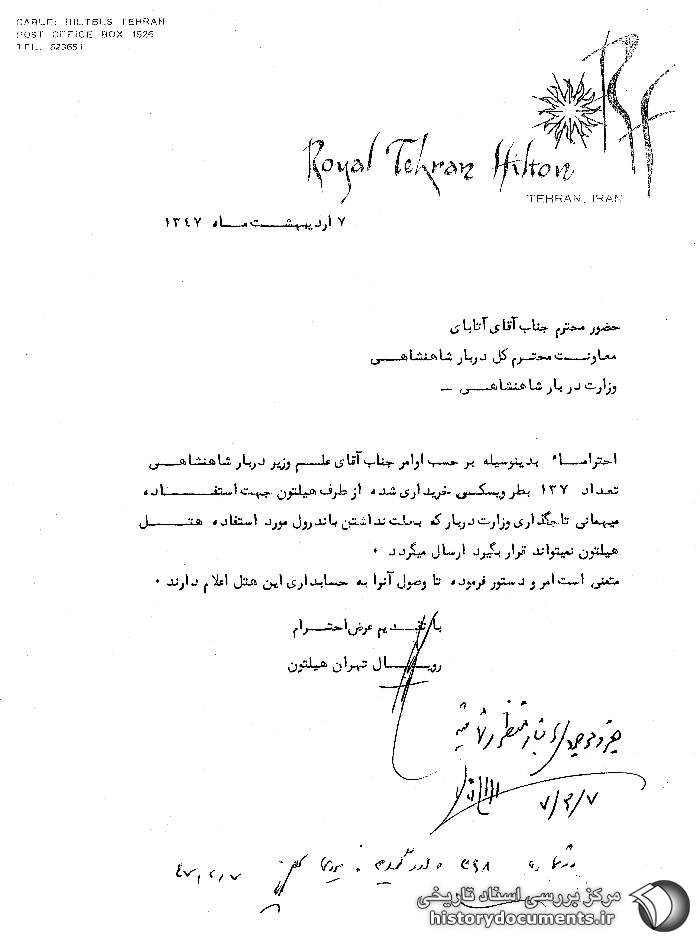 CABLE: HILTELS TEHRAN
POST OFFICE BOX 1526
TEL. 623651
RH
Royal Tehran Hilton
TEHRAN, IRAN
۷ اردیبهشت ماه ۱۳۴۷
حضور محترم جناب آقای آتابای
معاونت محترم کل دربار شاهنشاهی
وزارت دربار شاهنشاهی –
احتراما بدینوسیله بر حسب اوامر جناب آقای علم وزیر دربار شاهنشاهی
تعداد ۱۳۷ بطر ویسکی خریداری شده از طرف هیلتون جهت استفاده
میهمانی تاجگذاری وزارت دربار که بعلت نداشتن باندرول مورد استفاده هتل
هیلتون نمیتواند قرار بگیرد ارسال میگردد ۰
متمنی است امر و دستور فرموده تا وصول آنرا به حسابداری این هتل اعلام دارند ۰
با تقدیم عرض احترام
رویال تهران هیلتون
۷/۲/۷
۴۷,۲,۷
مرکز بررسی اسناد تاریخی
historydocuments.ir